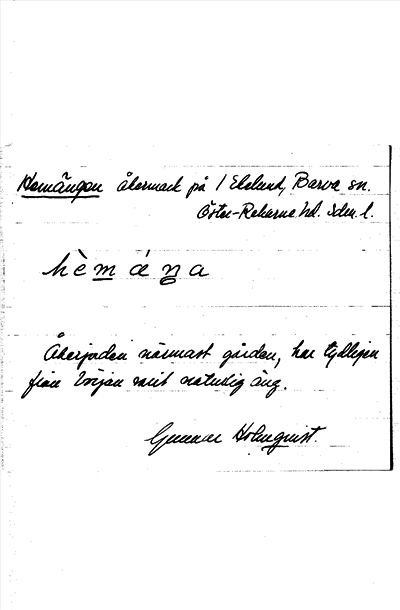 Hemängen åkermark på 1 Ekelund, Barva sn.
Öster-Rekarne hd. Sdm. l.
hèmáŋa
Åkerjorden närmast gården, har tydligen
från början varit naturlig äng.
Gunnar Holmquist.